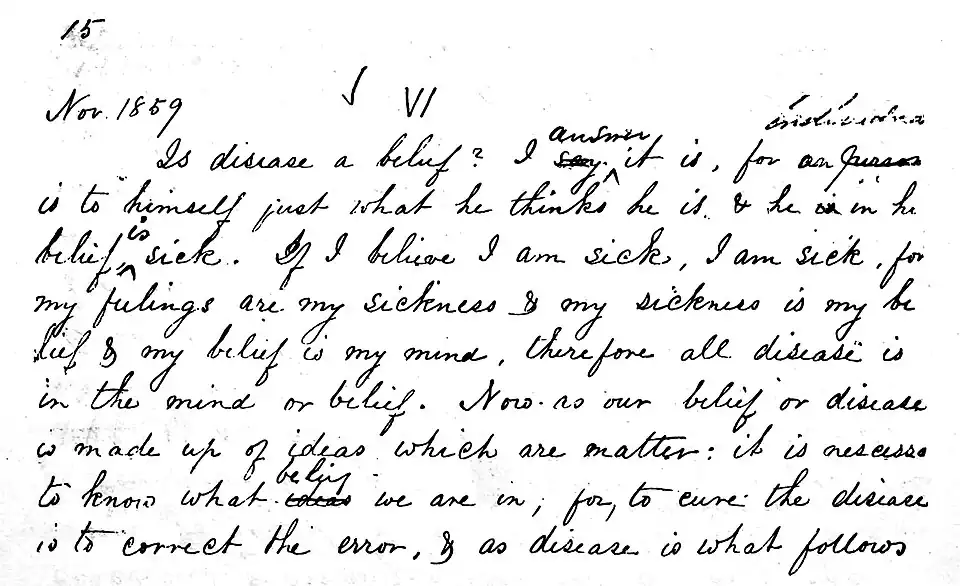 15
VI
Nov. 1859
individua
answer
Is disease a belief? I say it is, for an person
is to himself just what he thinks he is & he is in hi
is
belief, sick. If I believe I am sick, I am sick, for
my feelings are my sickness & my sickness is my be
lief & my belief is my mind, therefore all disease is
in the mind or belief. Now as our belief or disease
is made up of ideas which are matter: it is nescessa
belief
to know what ideas we are in; for, to cure the disease
is to correct the error, & as disease is what follows